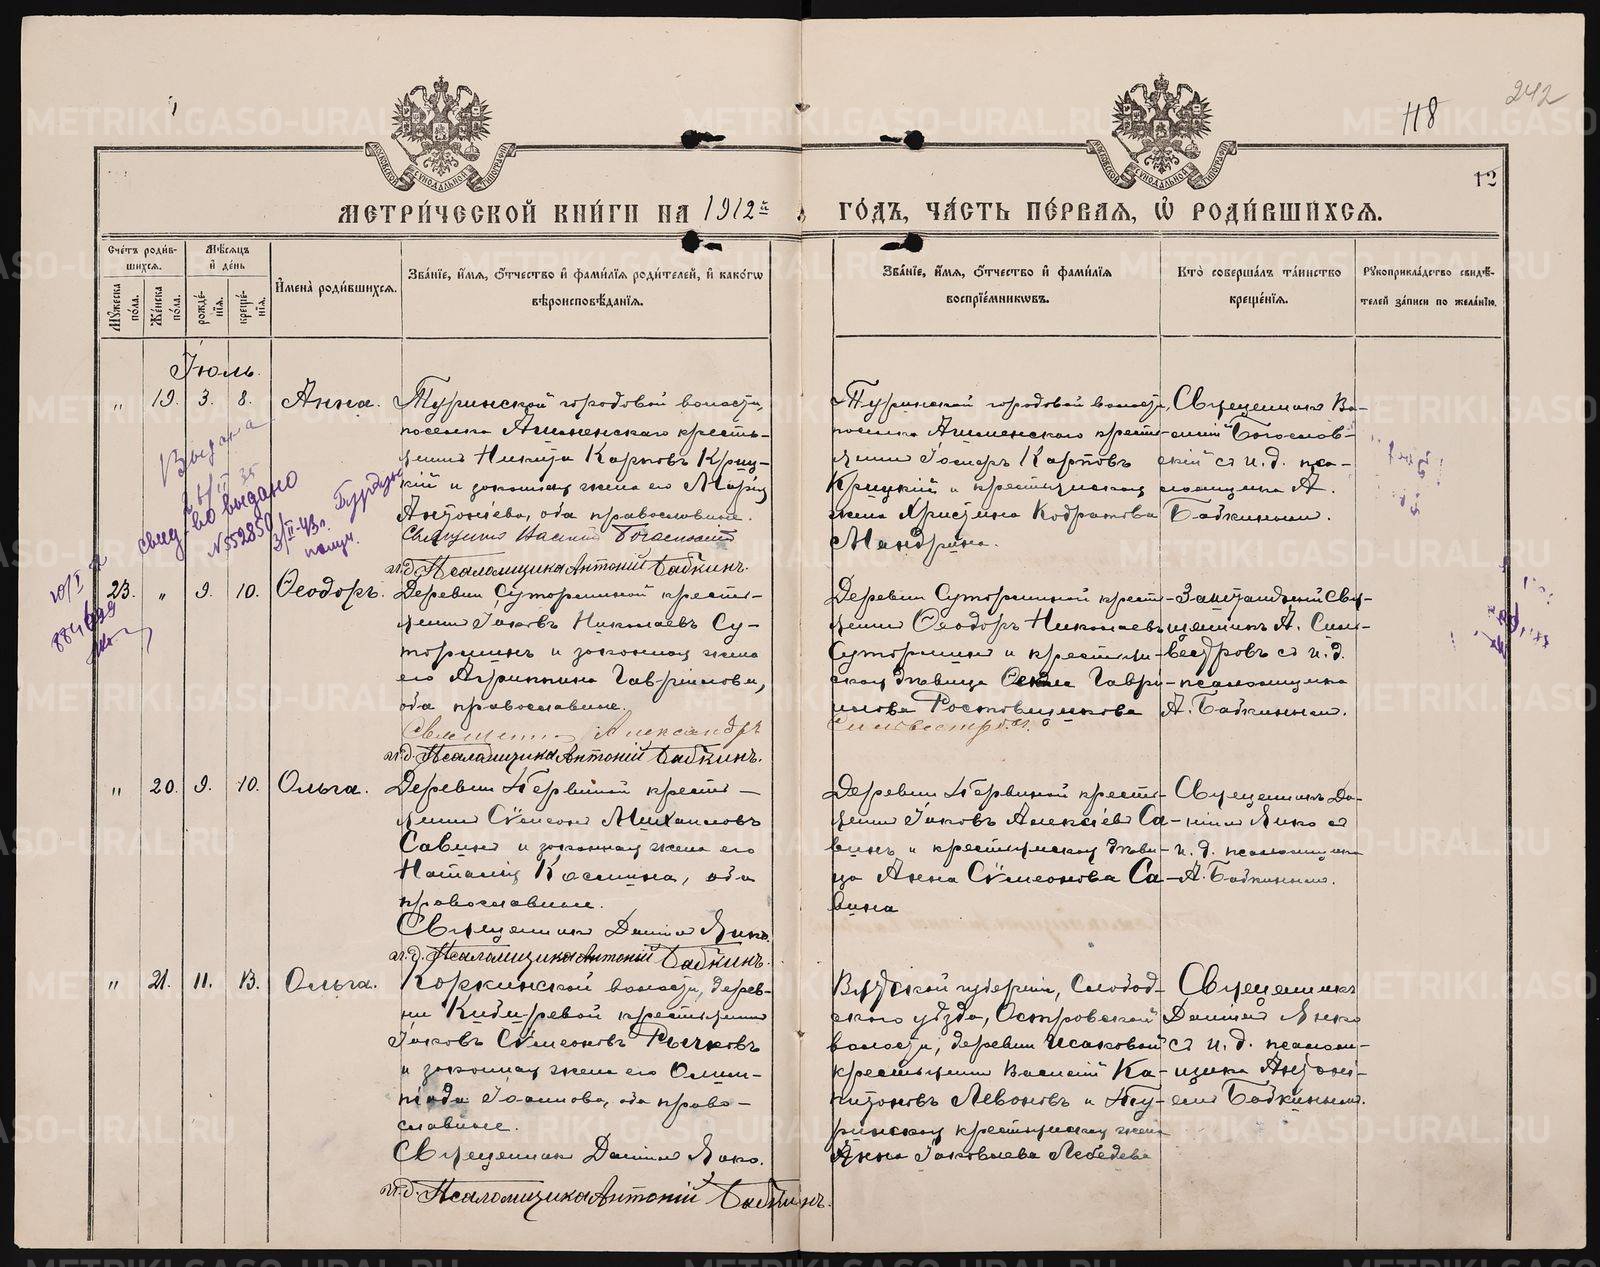 118
242
12
МОСКОВСКОЙ СѴНОДАЛЬНОЙ ТИПОГРАФІИ
МОСКОВСКОЙ СѴНОДАЛЬНОЙ ТИПОГРАФІИ
МЕТРИ́ЧЕСКОЙ КНИ́ГИ НА 1912й
ГО́ДЪ, ЧА́СТЬ ПЕ́РВАЯ, Ѡ҆ РОДИ́ВШИХСЯ.
Сче́тъ роди́в-
шихся.
Мꙋжеска по́ла.
Же́нска по́ла.
Мѣ́сяцъ
и҆ де́нь
рожде́-
нїя.
креще́-
нїя.
И҆мена̀ роди́вшихся.
Зва́нїе, и҆́мя, ѻ҆́тчество и҆ фами́лїя роди́телей, и҆ како́гѡ
вѣроисповѣ́данїя.
Зва́нїе, и҆́мя, ѻ҆́тчество и҆ фами́лїя
воспрїе́мникѡвъ.
Кто̀ соверша́лъ та́инство
креще́нїя.
Рꙋкоприкла́дство свидѣ́-
телей за́писи по жела́нїю.
Іюль.
" 19. 3. 8. Анна.
Туринской городовой волости,
поселка Ашменскаго кресть-
янинъ Никита Карповъ Криц-
кій и законная жена его Марія
Антоніева, оба православные.
Священникъ Василій Богословскій
и.д. Псаломщика Антоній Бабкинъ.
Туринской городовой волости,
поселка Ашменскаго кресть-
янинъ Іосифъ Карповъ
Крицкій и крестьянская
жена Христина Кодратова
Мандрина.
Священникъ Ва-
силій Богослов-
скій съ и.д. пса-
ломщика А.
Бабкинымъ.
Выдана
свид-во выдано
№552850
3/II-43г.
23. " 9. 10. Ѳеодоръ.
Деревни Сутормин​ой кресть-
янинъ Іаковъ Николаевъ Су-
торминъ и законная жена
его Агриппина Гавріилова,
оба православные.
Священникъ Александръ
Сильвестровъ
и.д. Псаломщика Антоній Бабкинъ.
Деревни Суторминой кресть-
янинъ Ѳеодоръ Николаевъ
Суторминъ и крестьян-
ская дѣвица Ѳекла Гаврі-
илова Ростовщикова
Заштатный свя-
щенникъ А. Силь-
вестровъ съ и.д.
псаломщика
А. Бабкинымъ.
884699
" 20. 9. 10. Ольга.
Деревни Первиной кресть-
янинъ Сѵмеонъ Михаиловъ
Савинъ и законная жена его
Наталія Космина, оба
православные.
Священникъ Даніилъ Янко.
и.д. Псаломщика Антоній Бабкинъ.
Деревни Первиной кресть-
янинъ Іаковъ Алексіевъ Са-
винъ и крестьянская дѣви-
ца Анна Сѵмеонова Са-
вина
Священникъ Да-
ніилъ Янко съ
и.д. псаломщика
А. Бабкинымъ.
" 21. 11. 13. Ольга.
Коркинской волости, дерев-
ни Кидыревой крестьянинъ
Іаковъ Сѵмеоновъ Рычковъ
и законная жена его Олим-
піада Іоаннова, оба право-
славные.
Священникъ Даніилъ Янко.
и.д. Псаломщика Антоній Бабкинъ.
Вятской губерніи, Слобод-
ского уѣзда, Островской
волости, деревни Исаковой
крестьянинъ Василій Ка-
питоновъ Левоновъ и Ту-
ринская крестьянская жена
Анна Іаковлева Лебедева
Священникъ
Даніилъ Янко
съ и.д. псалом-
щика Антоні-
емъ Бабкинымъ.
METRIKI.GASO-URAL.RU